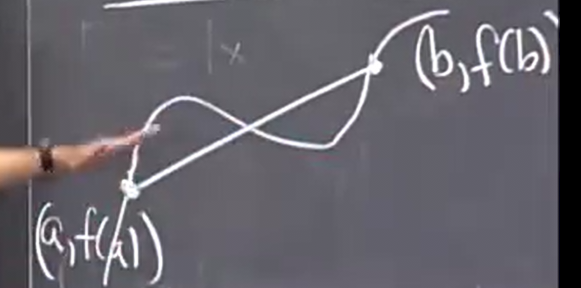 (b, f(b)
(a, f(a))